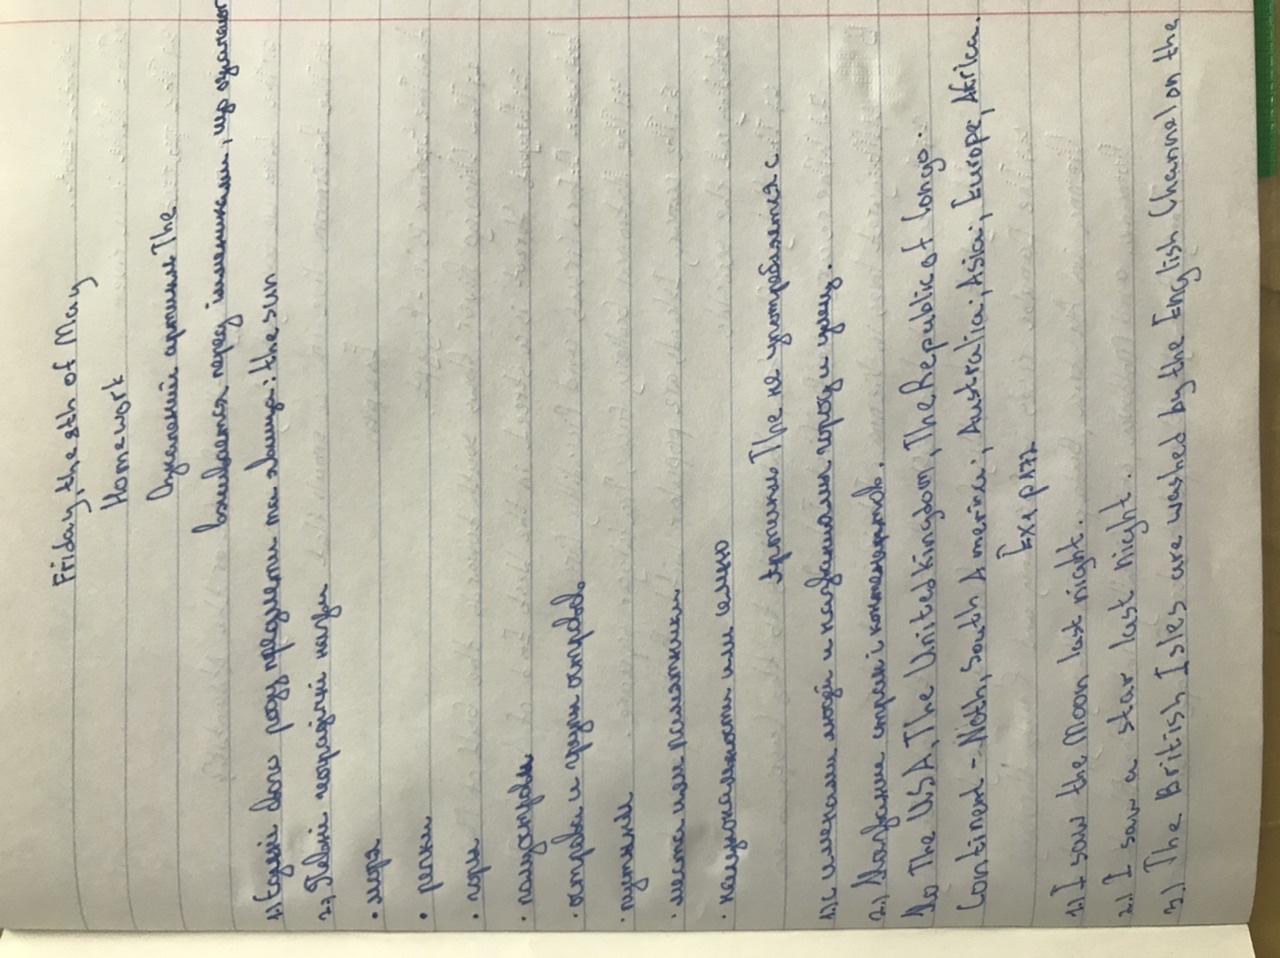 Friday, the 8th of May
Homework
Означений артикль The
вживається перед іменниками, що означают
1.) Єдині свого роду предмети та явища: the sun
2.) Певні географічні назви
• моря
• репки
• гори
• полуострова
• острова и групи островов
• пустыни
• места или памятники
• национальности или семью
Артикль The не употребляется с
1.) с именами людей и названиями городу и улиц.
2.) Название стран і континентов.
Но The USA, The United Kingdom, The Republic of Congo.
Continent - Noth, South America; Australia; Asia; Europe; Africa.
Ex 1 p 177
1.) I saw the Moon last night.
2.) I saw a star last night.
3.) The British Isles are washed by the English Channal on the